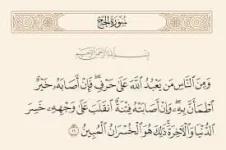 سُورَةُ الحَجِّ
بِسْمِ اللَّهِ الرَّحْمَٰنِ الرَّحِيمِ
وَمِنَ النَّاسِ مَن يَعْبُدُ اللَّهَ عَلَىٰ حَرْفٍ ۖ فَإِنْ أَصَابَهُ خَيْرٌ
اطْمَأَنَّ بِهِ ۖ وَإِنْ أَصَابَتْهُ فِتْنَةٌ انقَلَبَ عَلَىٰ وَجْهِهِ خَسِرَ
الدُّنْيَا وَالْآخِرَةَ ۚ ذَٰلِكَ هُوَ الْخُسْرَانُ الْمُبِينُ ﴿١١﴾